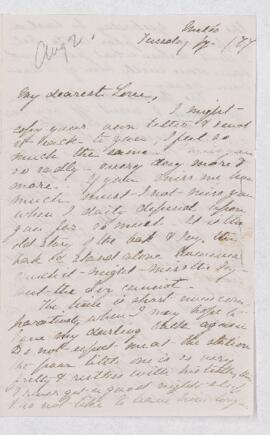 Aug 2.
Tuesday
My dearest Love,
I might
copy your own letter & send
it back to you. I feel so
much the same
so sadly - every day more &
more. If you miss me so
much must I not miss you
when I daily depend upon
you for so much. It is the
old story of the oak & Ivy, the
oak to stand alone
it might miss the Ivy
but the Ivy cannot.
The time is short now com
paratively when I may hope to
have my darling back again
Do not expect me at the station
the poor little one is so very
& restless with his teeth
I never get a good night &
do not like to leave him long